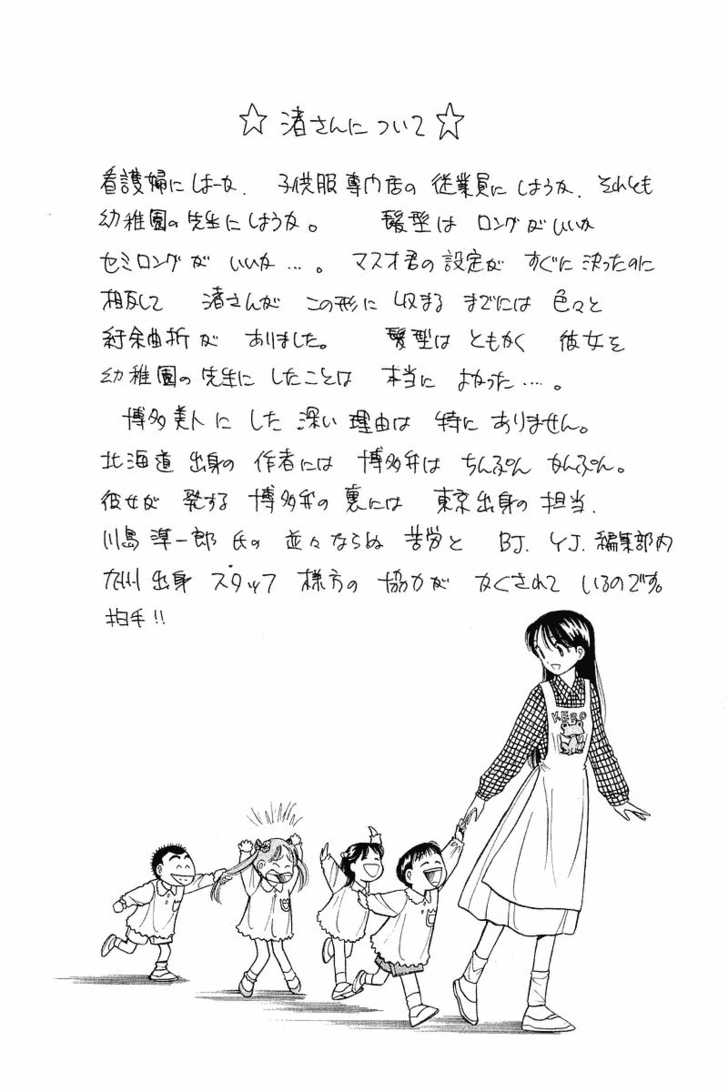 ☆ 渚さんについて ☆
看護婦にしよーか、子供服専門店の従業員にしようか、それとも
幼稚園の先生にしようか。 髪型はロングがいいか
セミロングがいいか…。マスオ君の設定がすぐに決ったのに
相反して 渚さんがこの形に収まるまでには色々と
紆余曲折がありました。 髪型はともかく 彼女を
幼稚園の先生にしたことは本当によかった…。
博多美人にした深い理由は特にありません。
北海道出身の作者には博多弁はちんぷんかんぷん。
彼女が発する博多弁の裏には東京出身の担当、
川島準一郎氏の並々ならぬ苦労とBJ、YJ、編集部内
九州出身スタッフ様方の協力がかくされているのです。
拍手!!
KERO